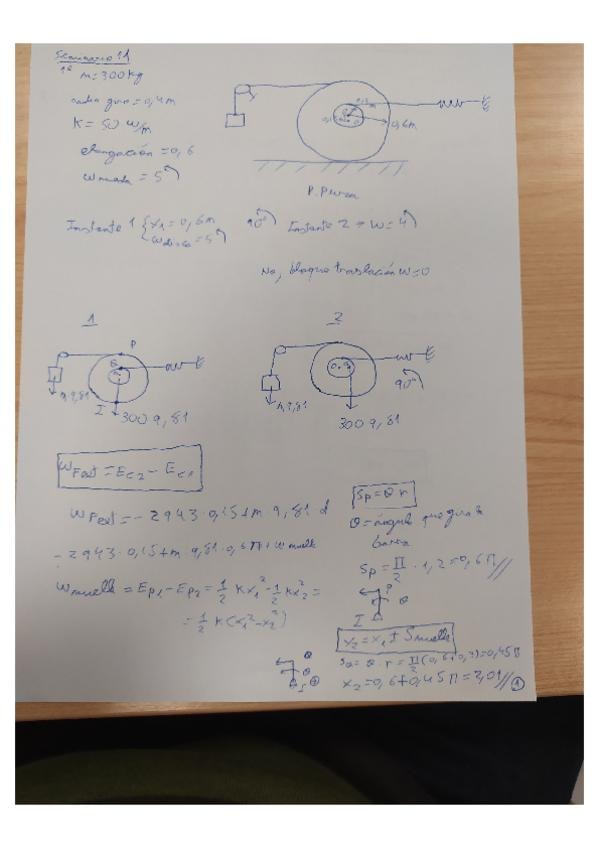 Seminario 11
1º m=300Kg
radio giro=0,4m
K=50 N/m
elongación=0,6
ω rueda = 5
0,6m
P. Pura
Instante 1 { x1=0,6m
ω disco = 5
90º Instante 2 → ω=4
No, bloque traslación ω=0
1
2
P
I
m9,81
300 9,81
m9,81
300 9,81
90º
WFext = Ec2 - Ec1
WFext = -2943·0,15+m 9,81 d
-2943·0,15+m 9,81·0,6π+W muelle
Wmuelle=Ep1-Ep2=1/2 Kx1²-1/2 Kx2²=
=1/2 K(x1²-x2²)
Sp=θ r
θ=ángulo que gira la barra
Sp=π/2 · 1,2=0,6π//
P
θ
I
x2=x1 ± Smuelle
SQ=θ·r=π/2(0,6+0,3)=0,45π
x2=0,6+0,45π=2,01//
1